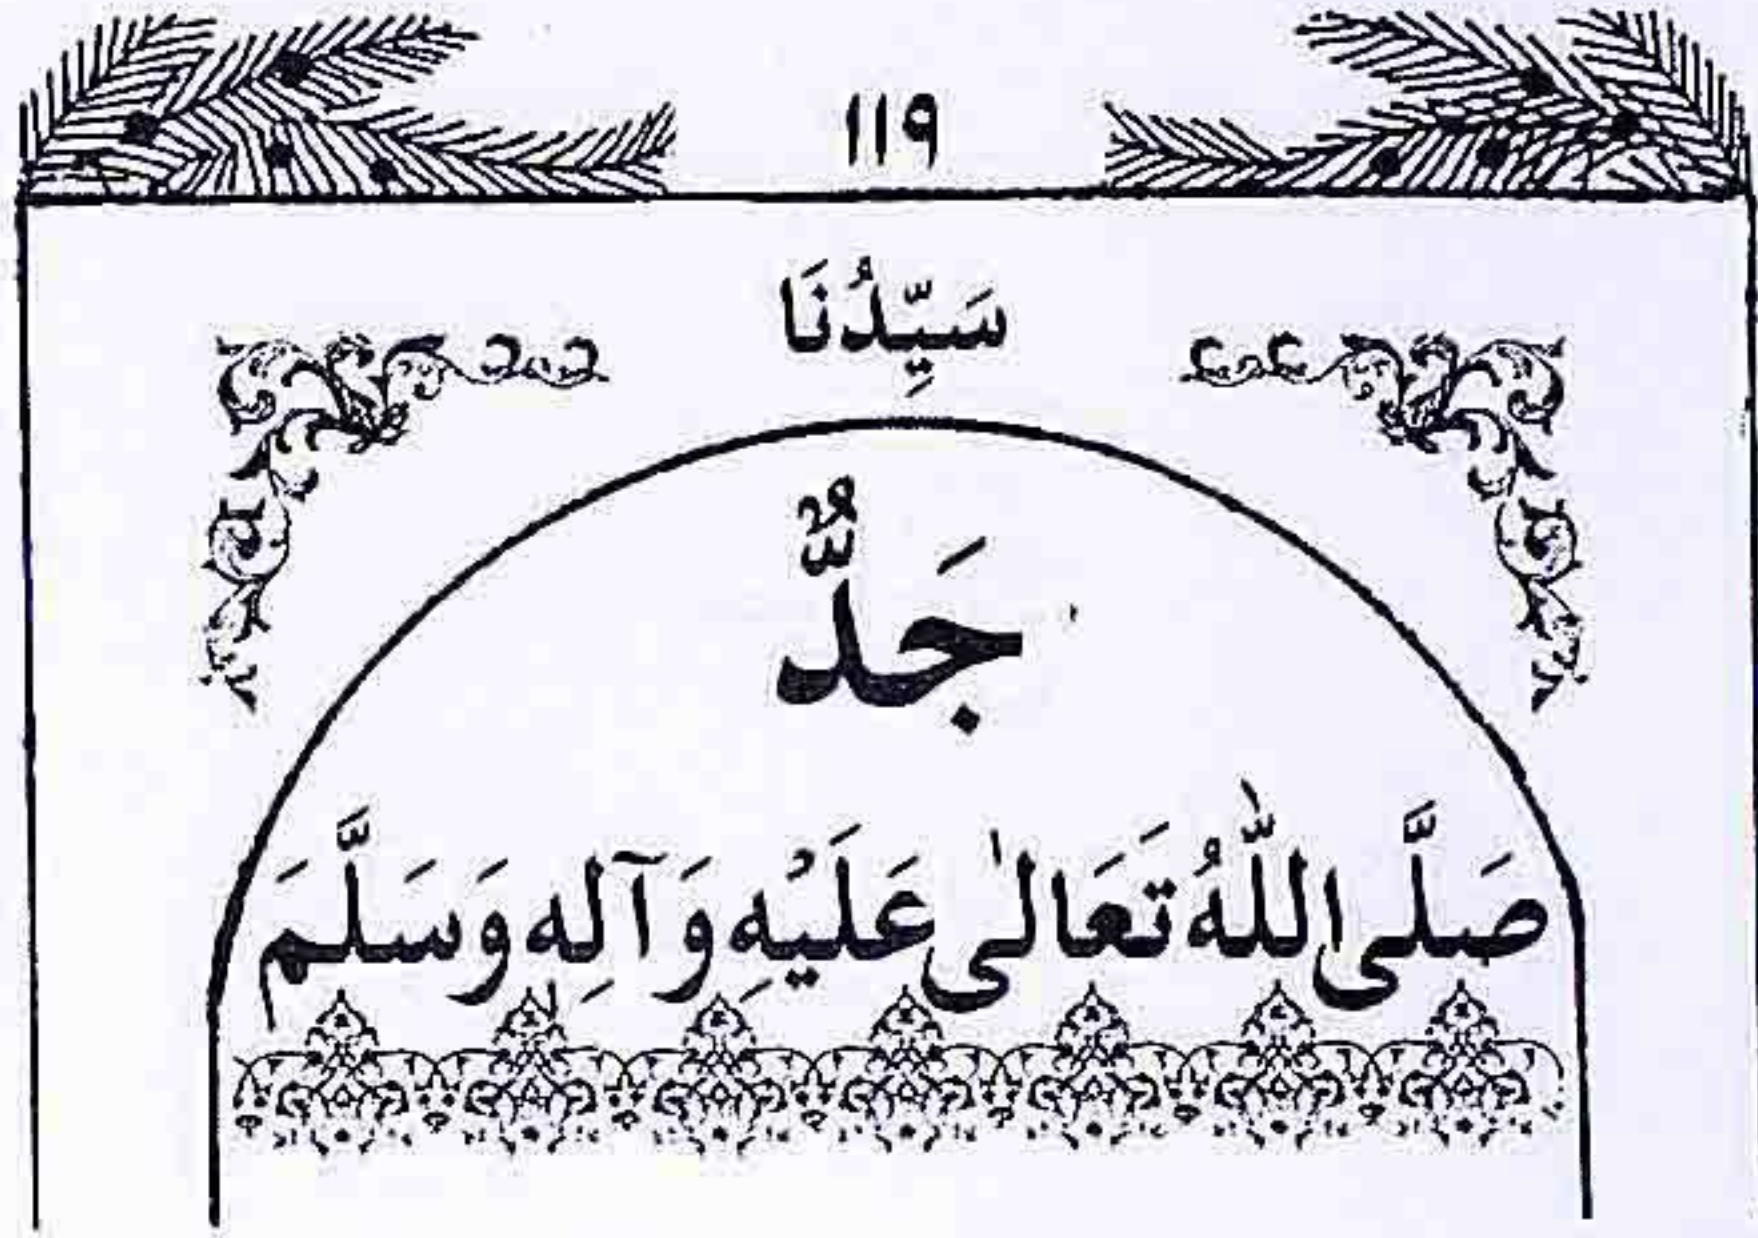 ۱۱۹
سَيِّدُنَا
جَدٌّ
صَلَّى اللّٰهُ تَعَالٰى عَلَيْهِ وَآلِهِ وَسَلَّمَ